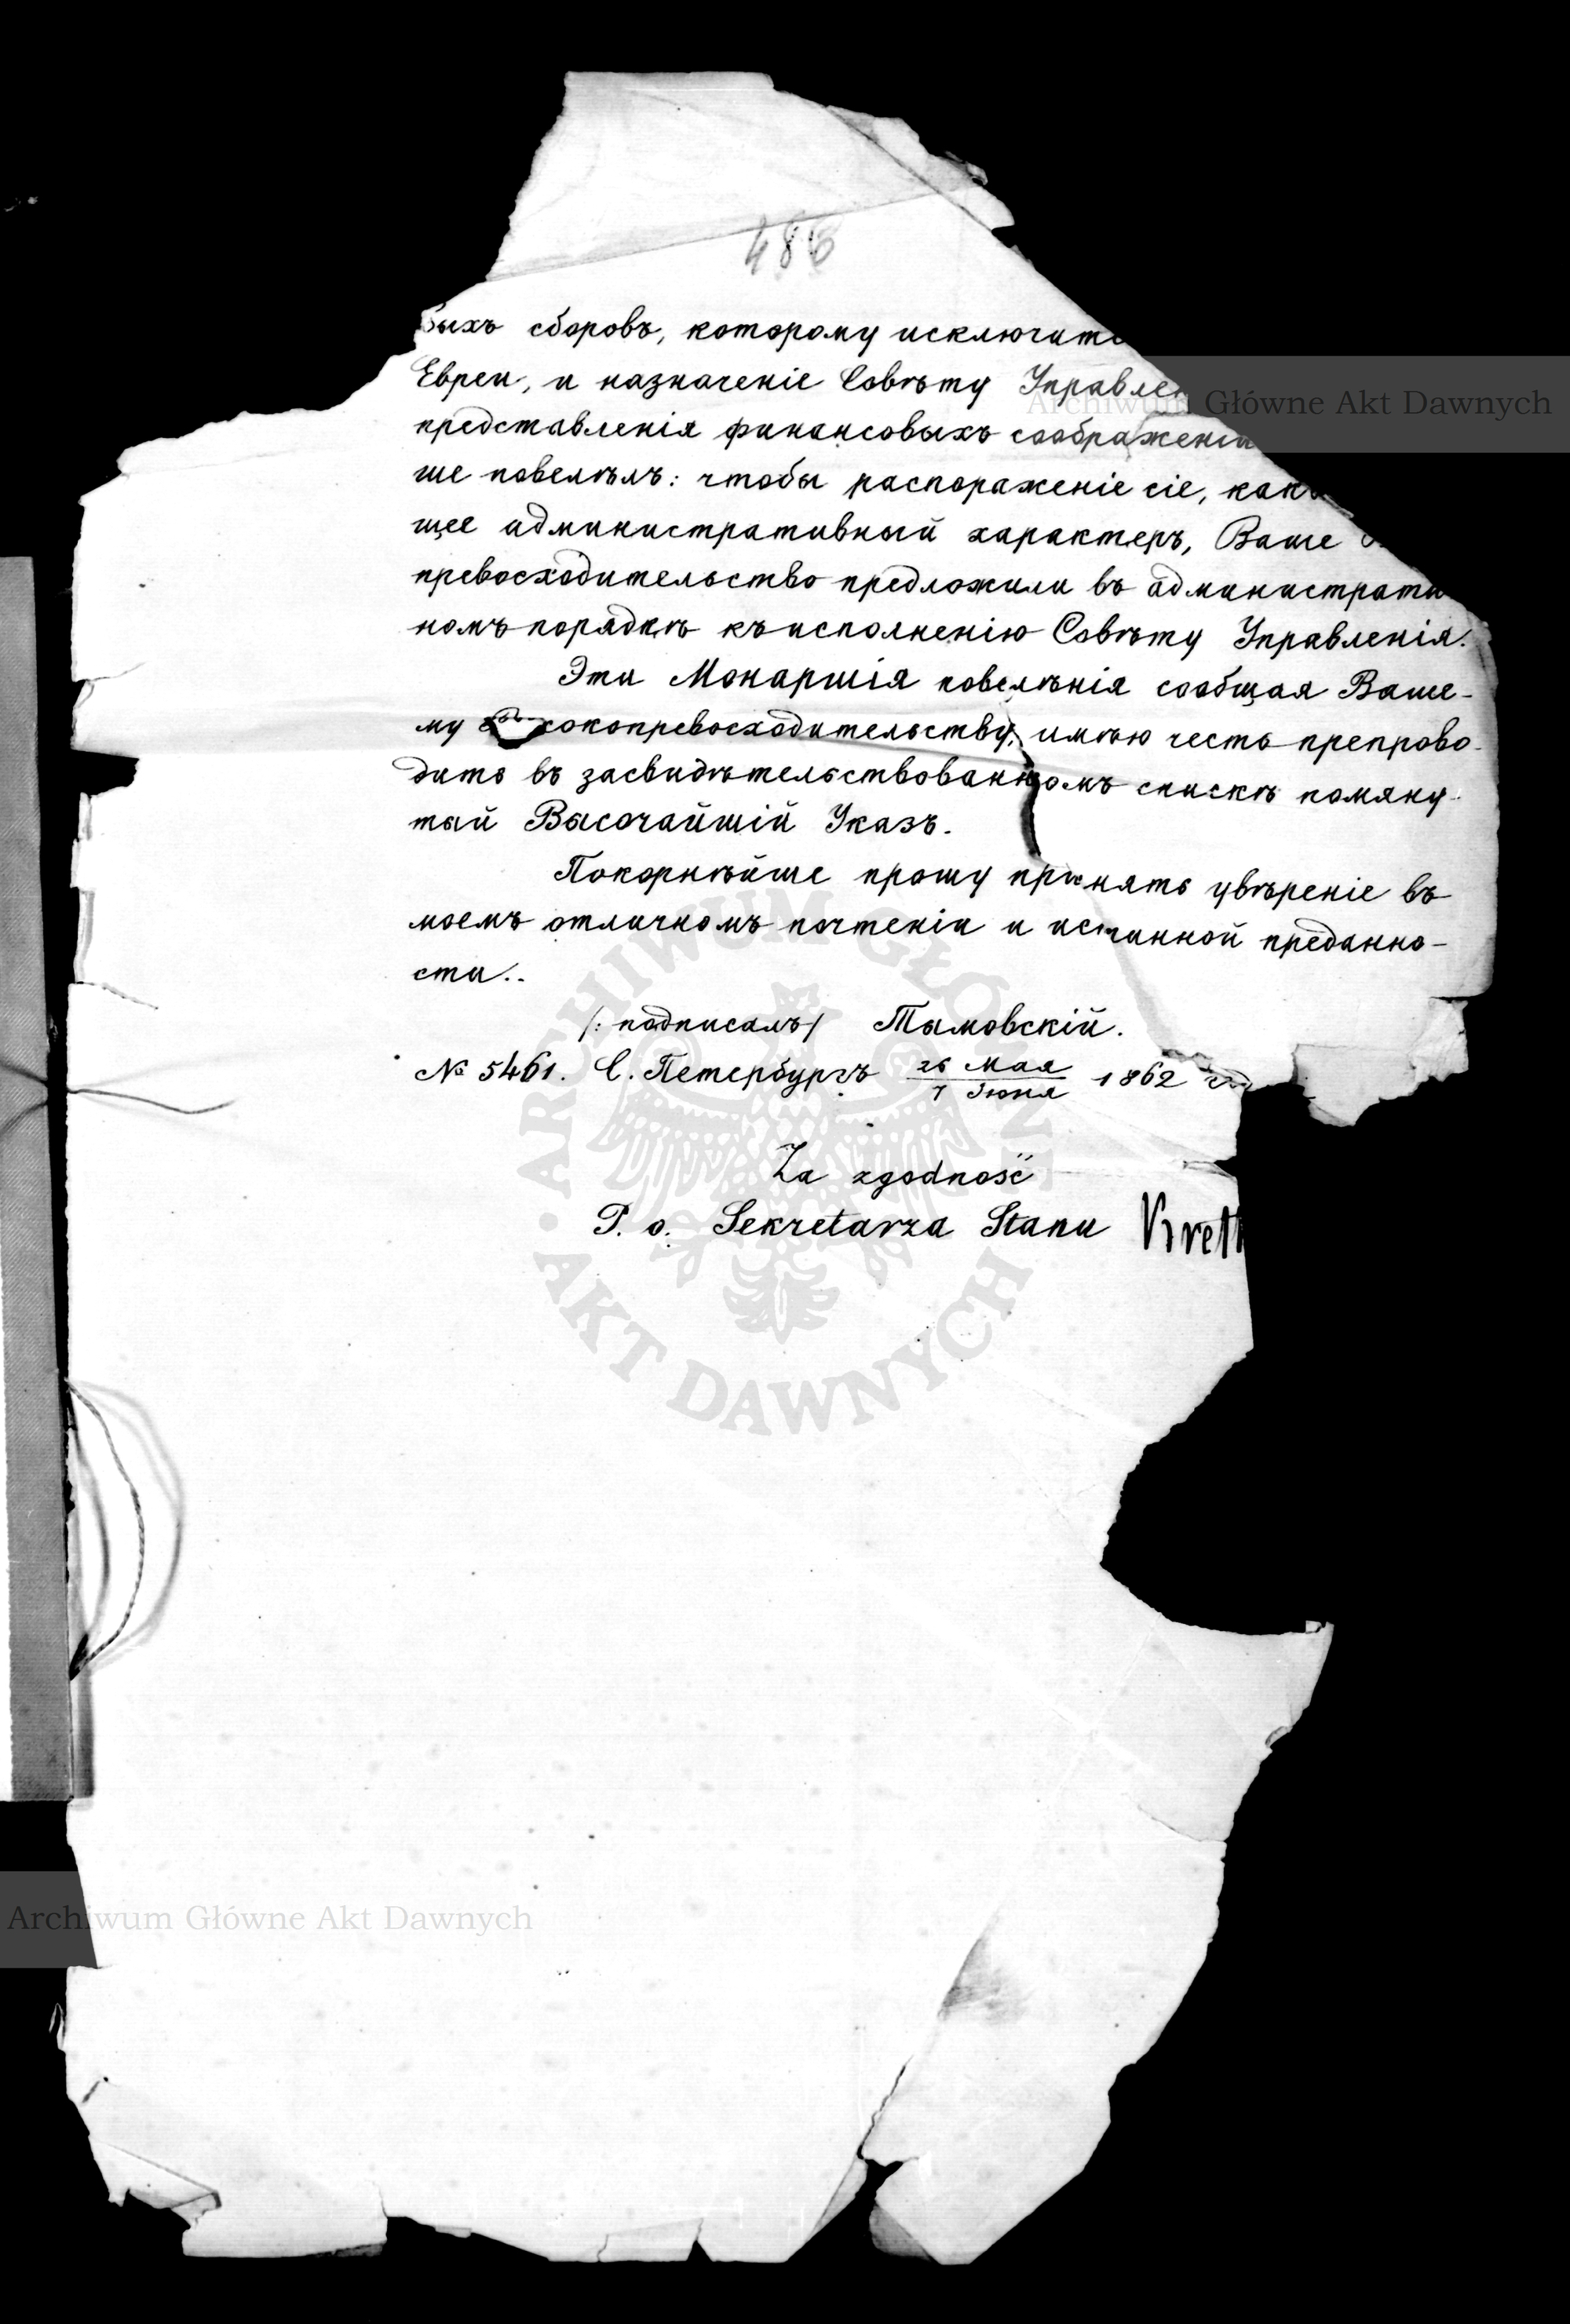 486
быхъ сборовъ, которому исключите
Евреи, и назначеніе Совѣту Управлен
представленія финансовыхъ соображеній
ше повелѣлъ: чтобы распораженіе сіе, какъ
щее административный характеръ, Ваше
превосходительство предложили въ администрати
номъ порядкѣ къ исполненію Совѣту Управленія.
Эти Монаршія повелѣнія сообщая Ваше-
му Высокопревосходительству, имѣю честь препрово-
дить въ засвидѣтельствованномъ спискѣ помяну-
тый Высочайшій Указъ.
Покорнѣйше прошу принять увѣреніе въ
моемъ отличномъ почтеніи и истинной преданно-
сти..
/: подписалъ/ Тымовскій.
№ 5461. С. Петербургъ 26 Мая / 7 Іюня 1862 год
Za zgodność
P. o. Sekretarza Stanu Krett
Archiwum Główne Akt Dawnych
ARCHIWUM GŁÓWNE
AKT DAWNYCH
Archiwum Główne Akt Dawnych